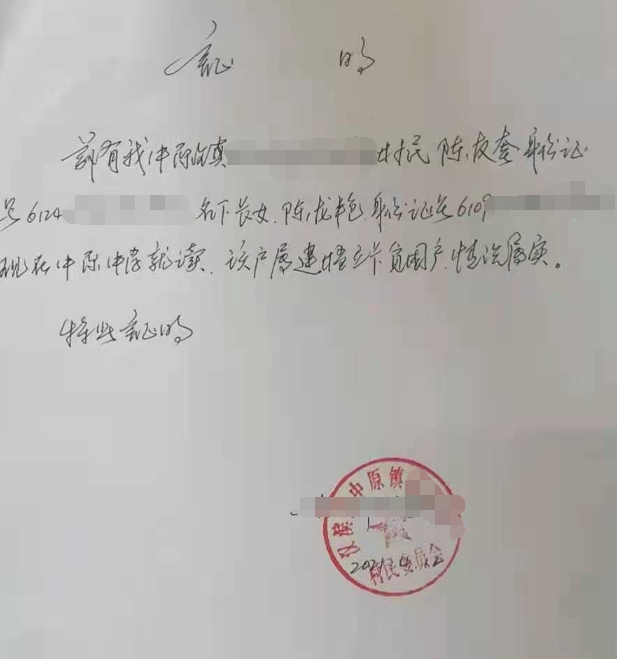 证 明
兹有我中原镇 村民 陈友奎 身份证
号6124 名下长女.陈龙艳.身份证号6109
现在中原中学就读.该户属建档立卡贫困户.情况属实。
特此证明
汉滨 中原镇
村民委员会